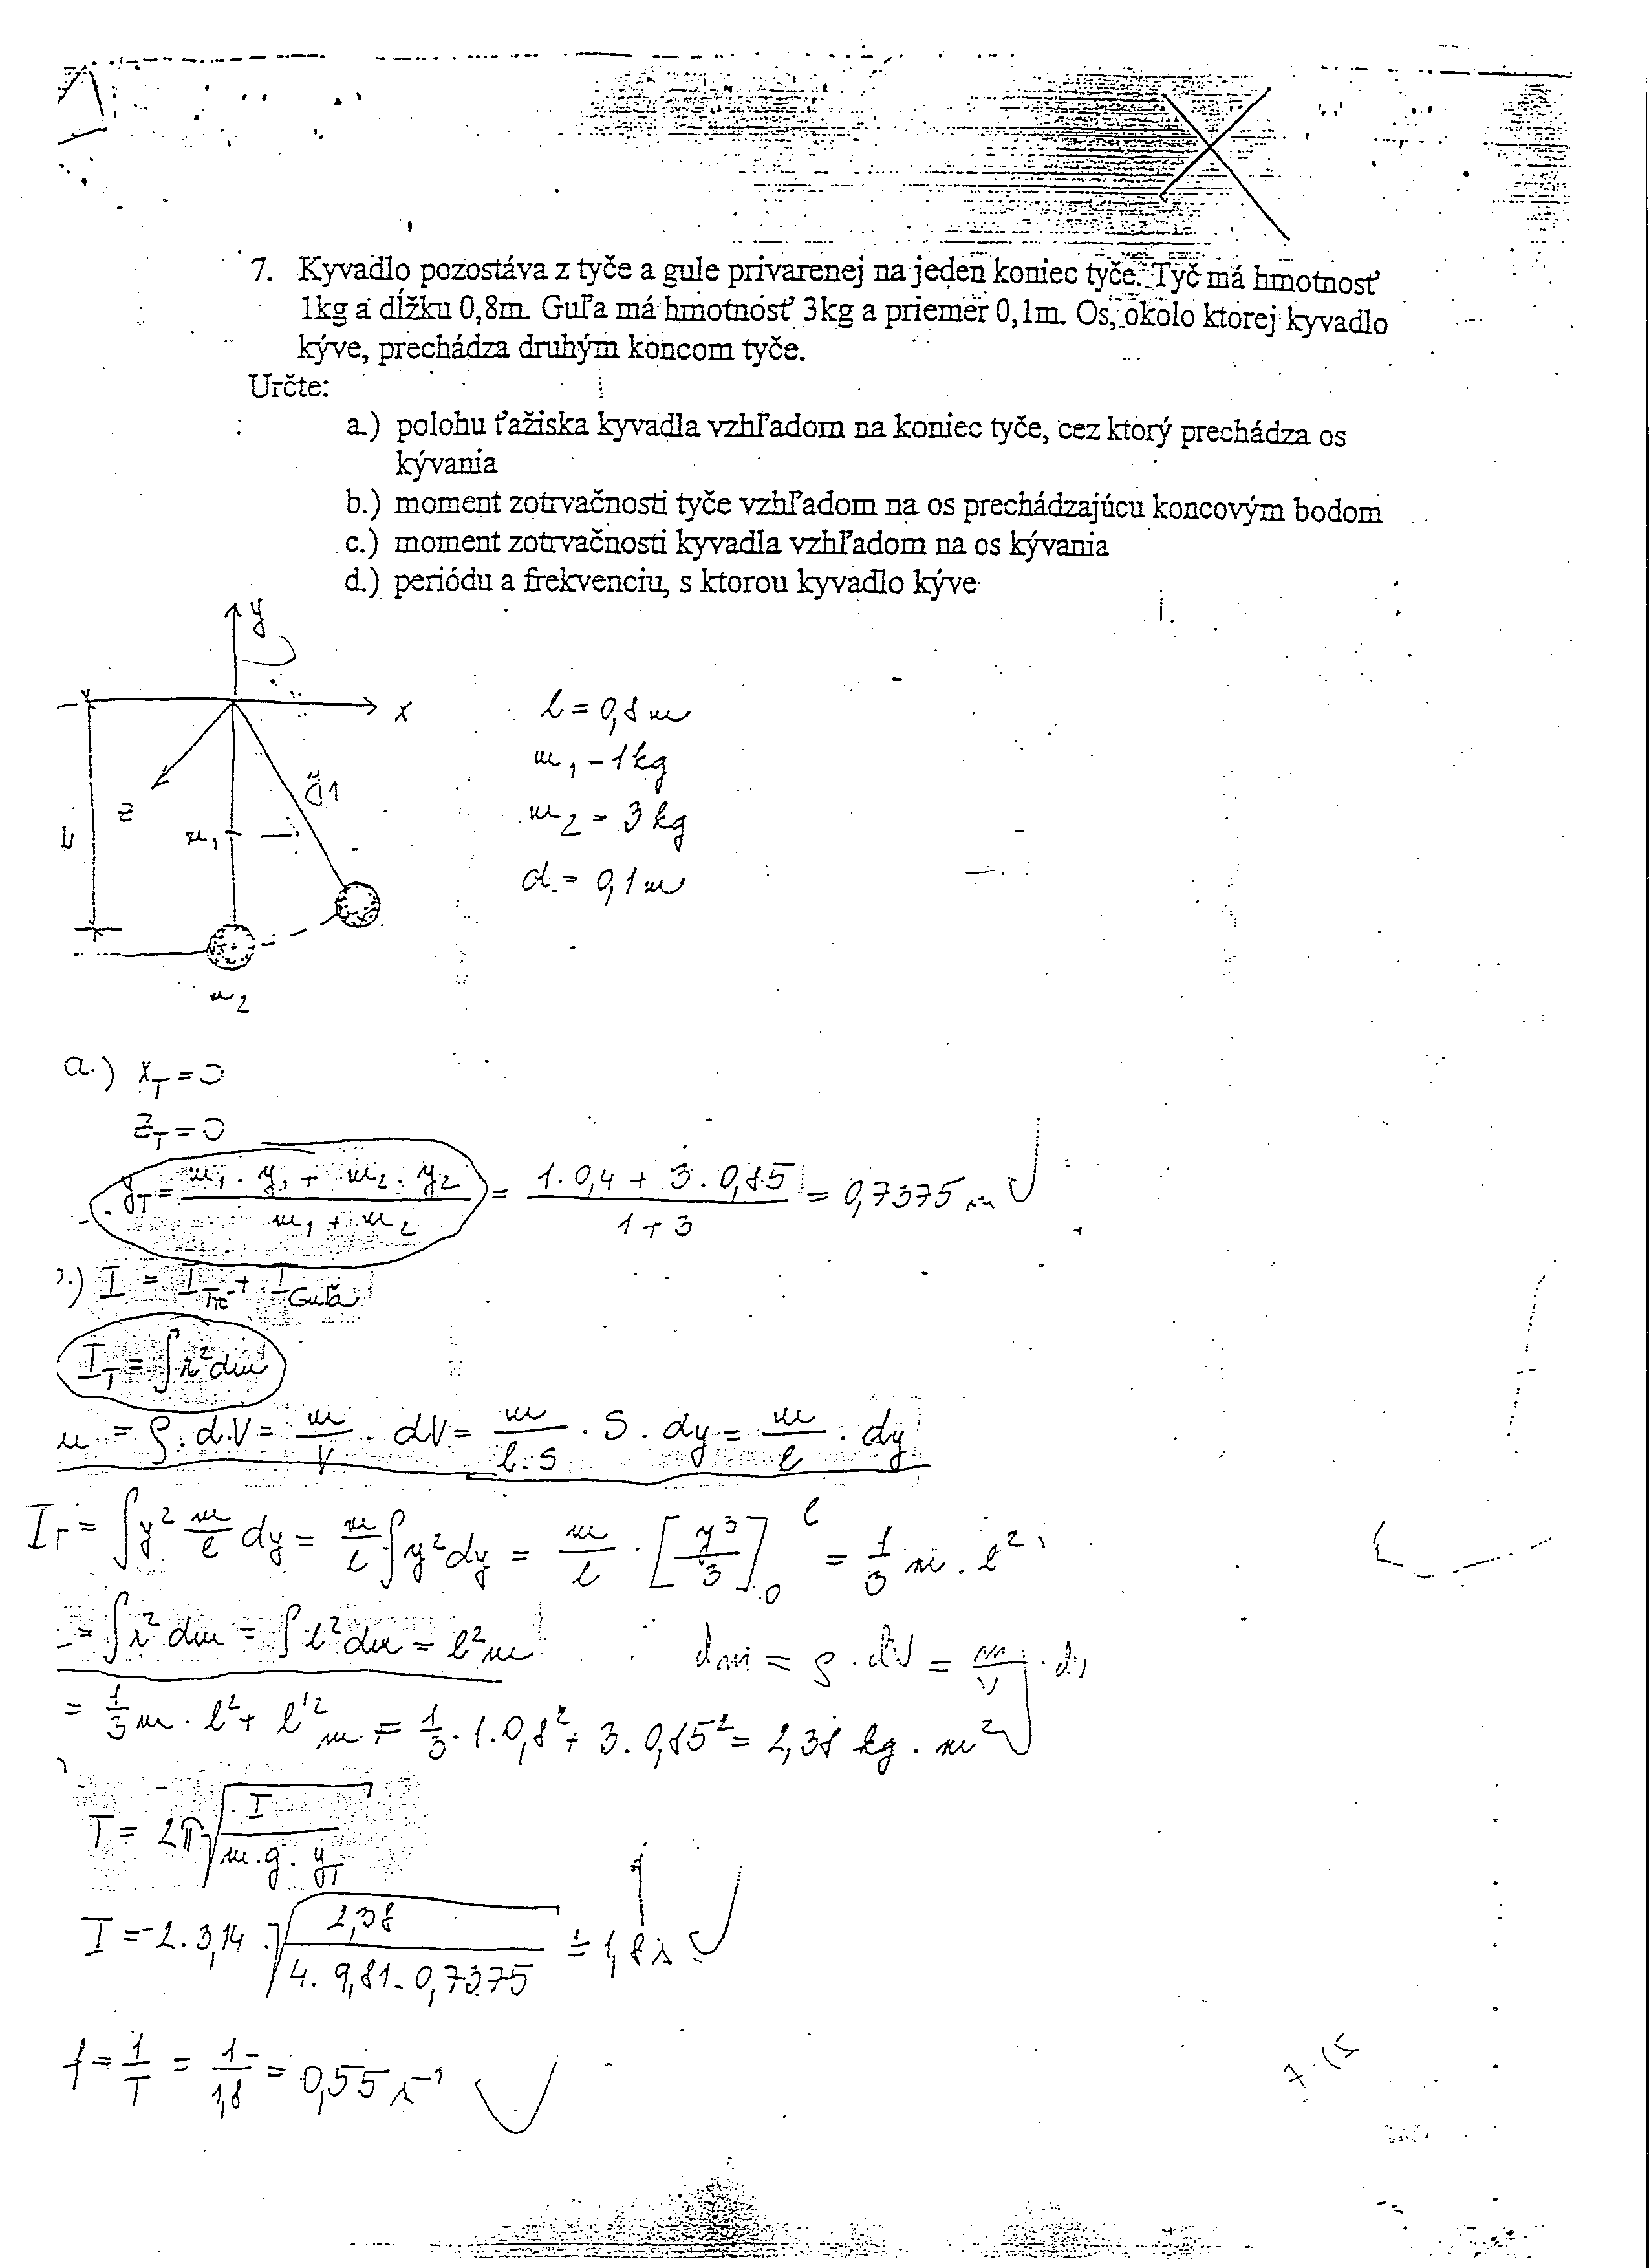 7. Kyvadlo pozostáva z tyče a gule privarenej na jeden koniec tyče. Tyč má hmotnosť
1kg a dĺžku 0,8m. Guľa má hmotnosť 3kg a priemer 0,1m. Os, okolo ktorej kyvadlo
kýve, prechádza druhým koncom tyče.
Určte:
a.) polohu ťažiska kyvadla vzhľadom na koniec tyče, cez ktorý prechádza os
kývania
b.) moment zotrvačnosti tyče vzhľadom na os prechádzajúcu koncovým bodom
c.) moment zotrvačnosti kyvadla vzhľadom na os kývania
d.) periódu a frekvenciu, s ktorou kyvadlo kýve
y
x
z
y1
m1
m2
l = 0,8 m
m1 - 1 kg
m2 = 3 kg
d = 0,1 m
a.) xT = 0
zT = 0
yT = (m1 . y1 + m2 . y2) / (m1 + m2) = (1 . 0,4 + 3 . 0,85) / (1 + 3) = 0,7375 m
.) I = ITyč + IGuľa
IT = ∫r²dm
m = ρ . dV = m/V . dV = m/(l.S) . S . dy = m/l . dy
IT = ∫y² m/l dy = m/l ∫y²dy = m/l . [y³/3]₀ˡ = 1/3 m . l²
= ∫r²dm = ∫l²dm = l²m dm = ρ . dV = m/V . d
= 1/3 m . l² + l'² m = 1/3 . 1 . 0,8² + 3 . 0,85² = 2,38 kg . m²
T = 2π √(I / (m . g . yT))
T = 2 . 3,14 . √(2,38 / (4 . 9,81 . 0,7375)) ≐ 1,8 s
f = 1/T = 1/1,8 = 0,55 s⁻¹
7.15